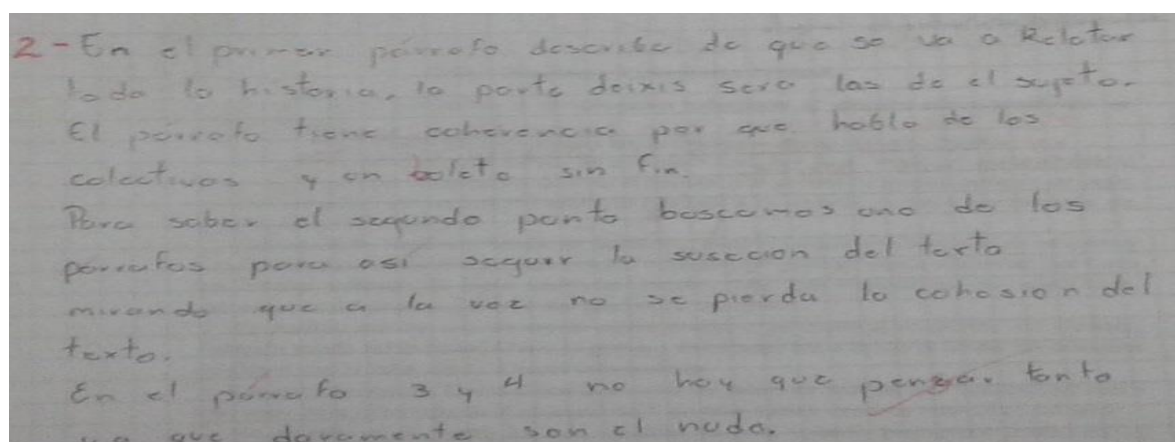 2-En el primer párrafo describe de que se va a Relatar
toda la historia, la parte deixis sera las de el sujeto.
El párrafo tiene coherencia por que habla de los
colectivos y un boleto sin fin.
Para saber el segundo punto buscamos uno de los
parrafos para asi seguir la suseción del texto
mirando que a la vez no se pierda la cohesion del
texto.
En el párrafo 3 y 4 no hay que penzar tanto
ya que claramente son el nudo.